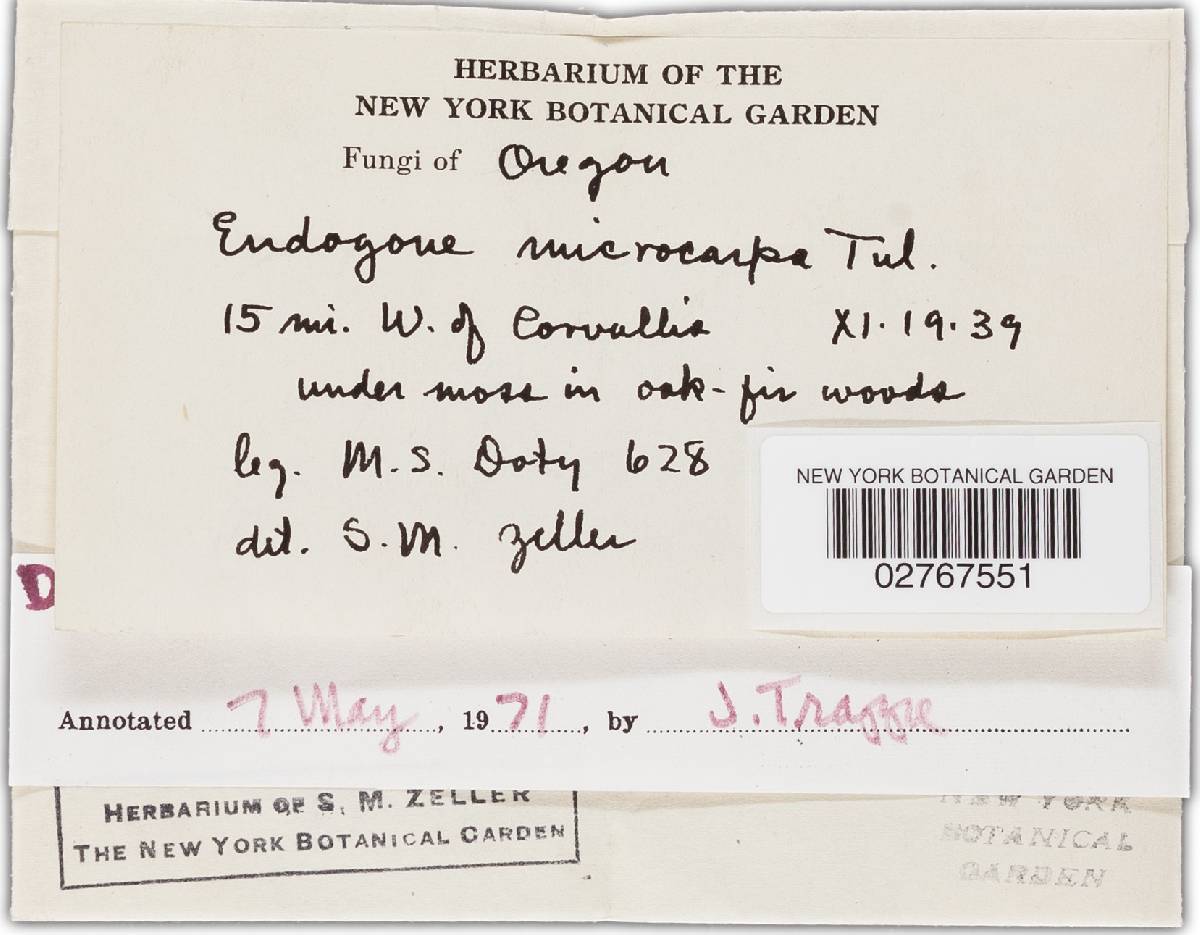 HERBARIUM OF THE
NEW YORK BOTANICAL GARDEN
Fungi of Oregon
Endogone microcarpa Tul.
15 mi. W. of Corvallis XI.19.39
under moss in oak-fir woods
leg. M.S. Doty 628
det. S.M. Zeller
NEW YORK BOTANICAL GARDEN
02767551
D
Annotated 7 May, 1971, by J. Trappe
HERBARIUM OF S. M. ZELLER
THE NEW YORK BOTANICAL GARDEN
NEW YORK
BOTANICAL
GARDEN